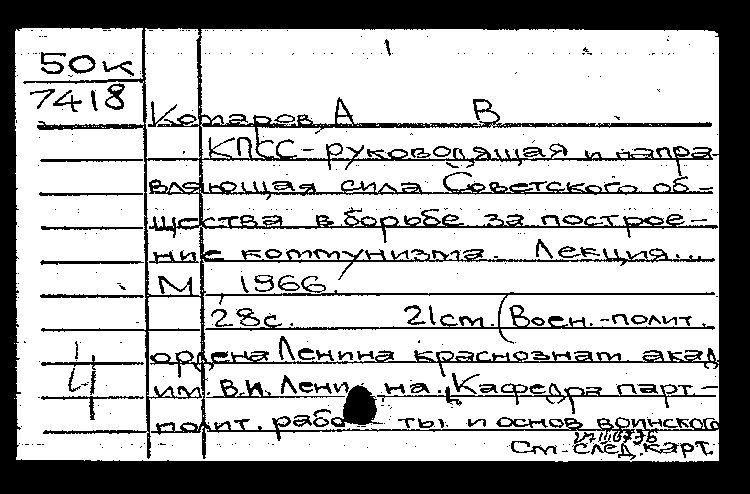 50к
7418
Комаров, А В
КПСС - руководящая и напра-
вляющая сила Советского об-
щества в борьбе за построе-
ние коммунизма. Лекция...
М, 1966.
28с. 21см. (Воен.-полит.
ордена Ленина краснознам. акад
им. В.И. Ленина. Кафедра парт.-
4
полит. работы и основ воинского
См. след. карт.